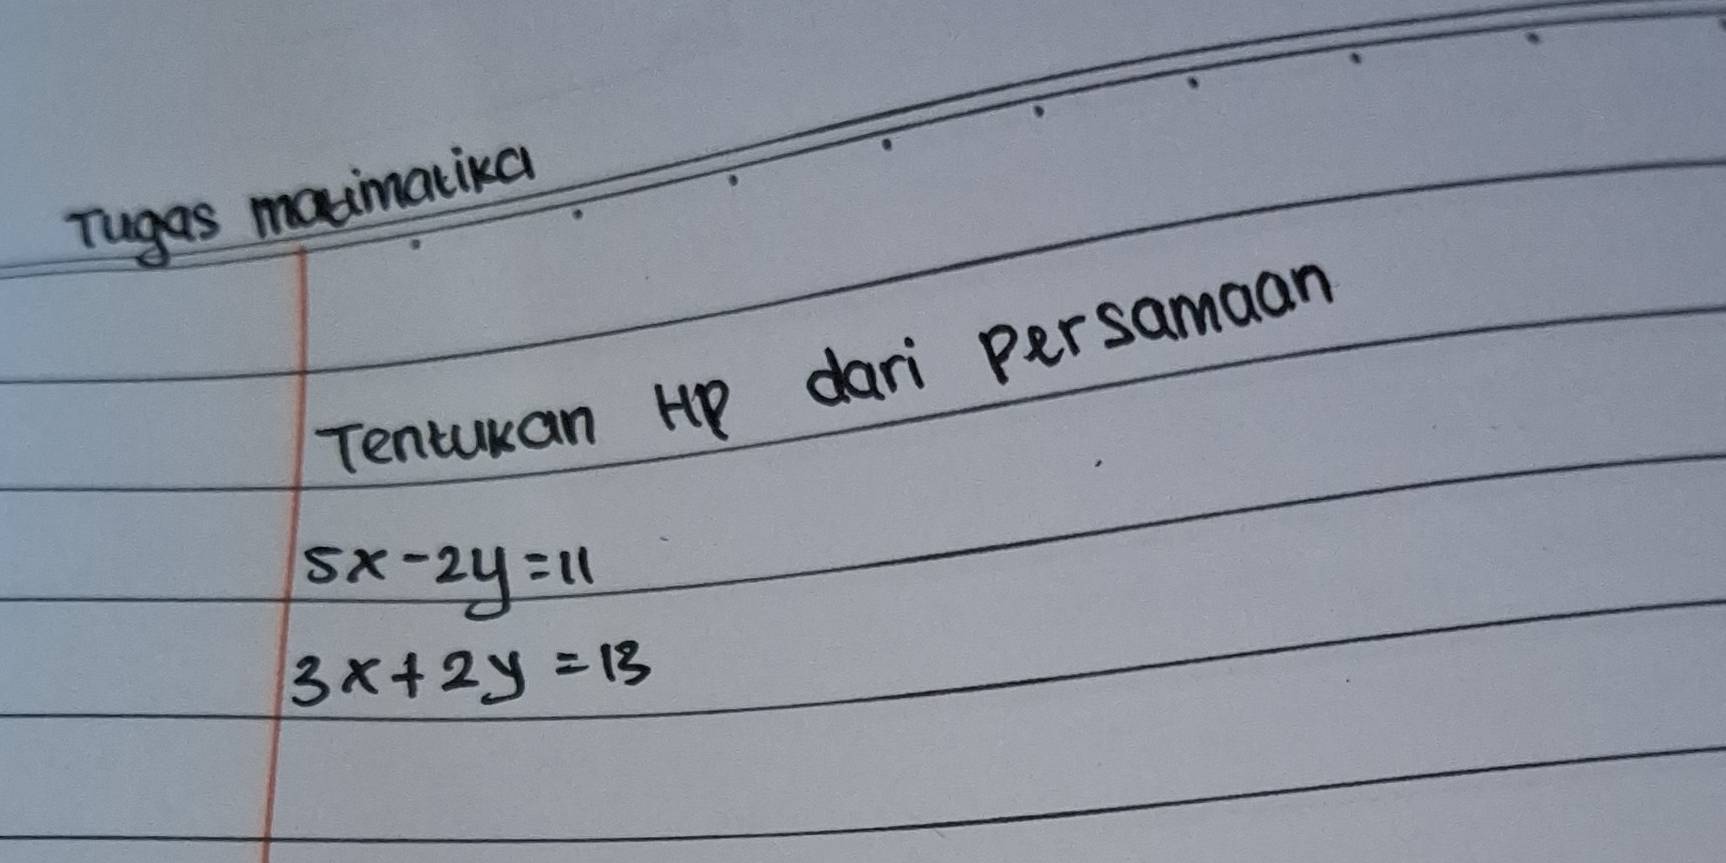 Tugas matimatika
Tentukan HP dari persamaan
5x-2y=11
3x+2y=13